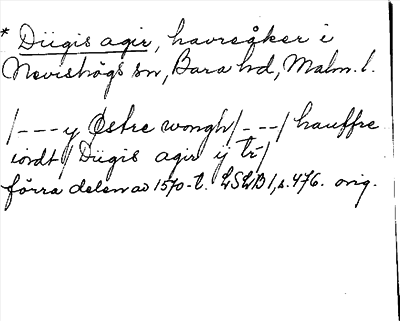 * Dügis agir, havreåker i
Nevishögs sn, Bara hd, Malm. l.
/---y Østre wongh/---/ hauffre
iordt/Dügis agir ij tr/
förra delen av 1570-t. LSLB 1, s. 476. orig.